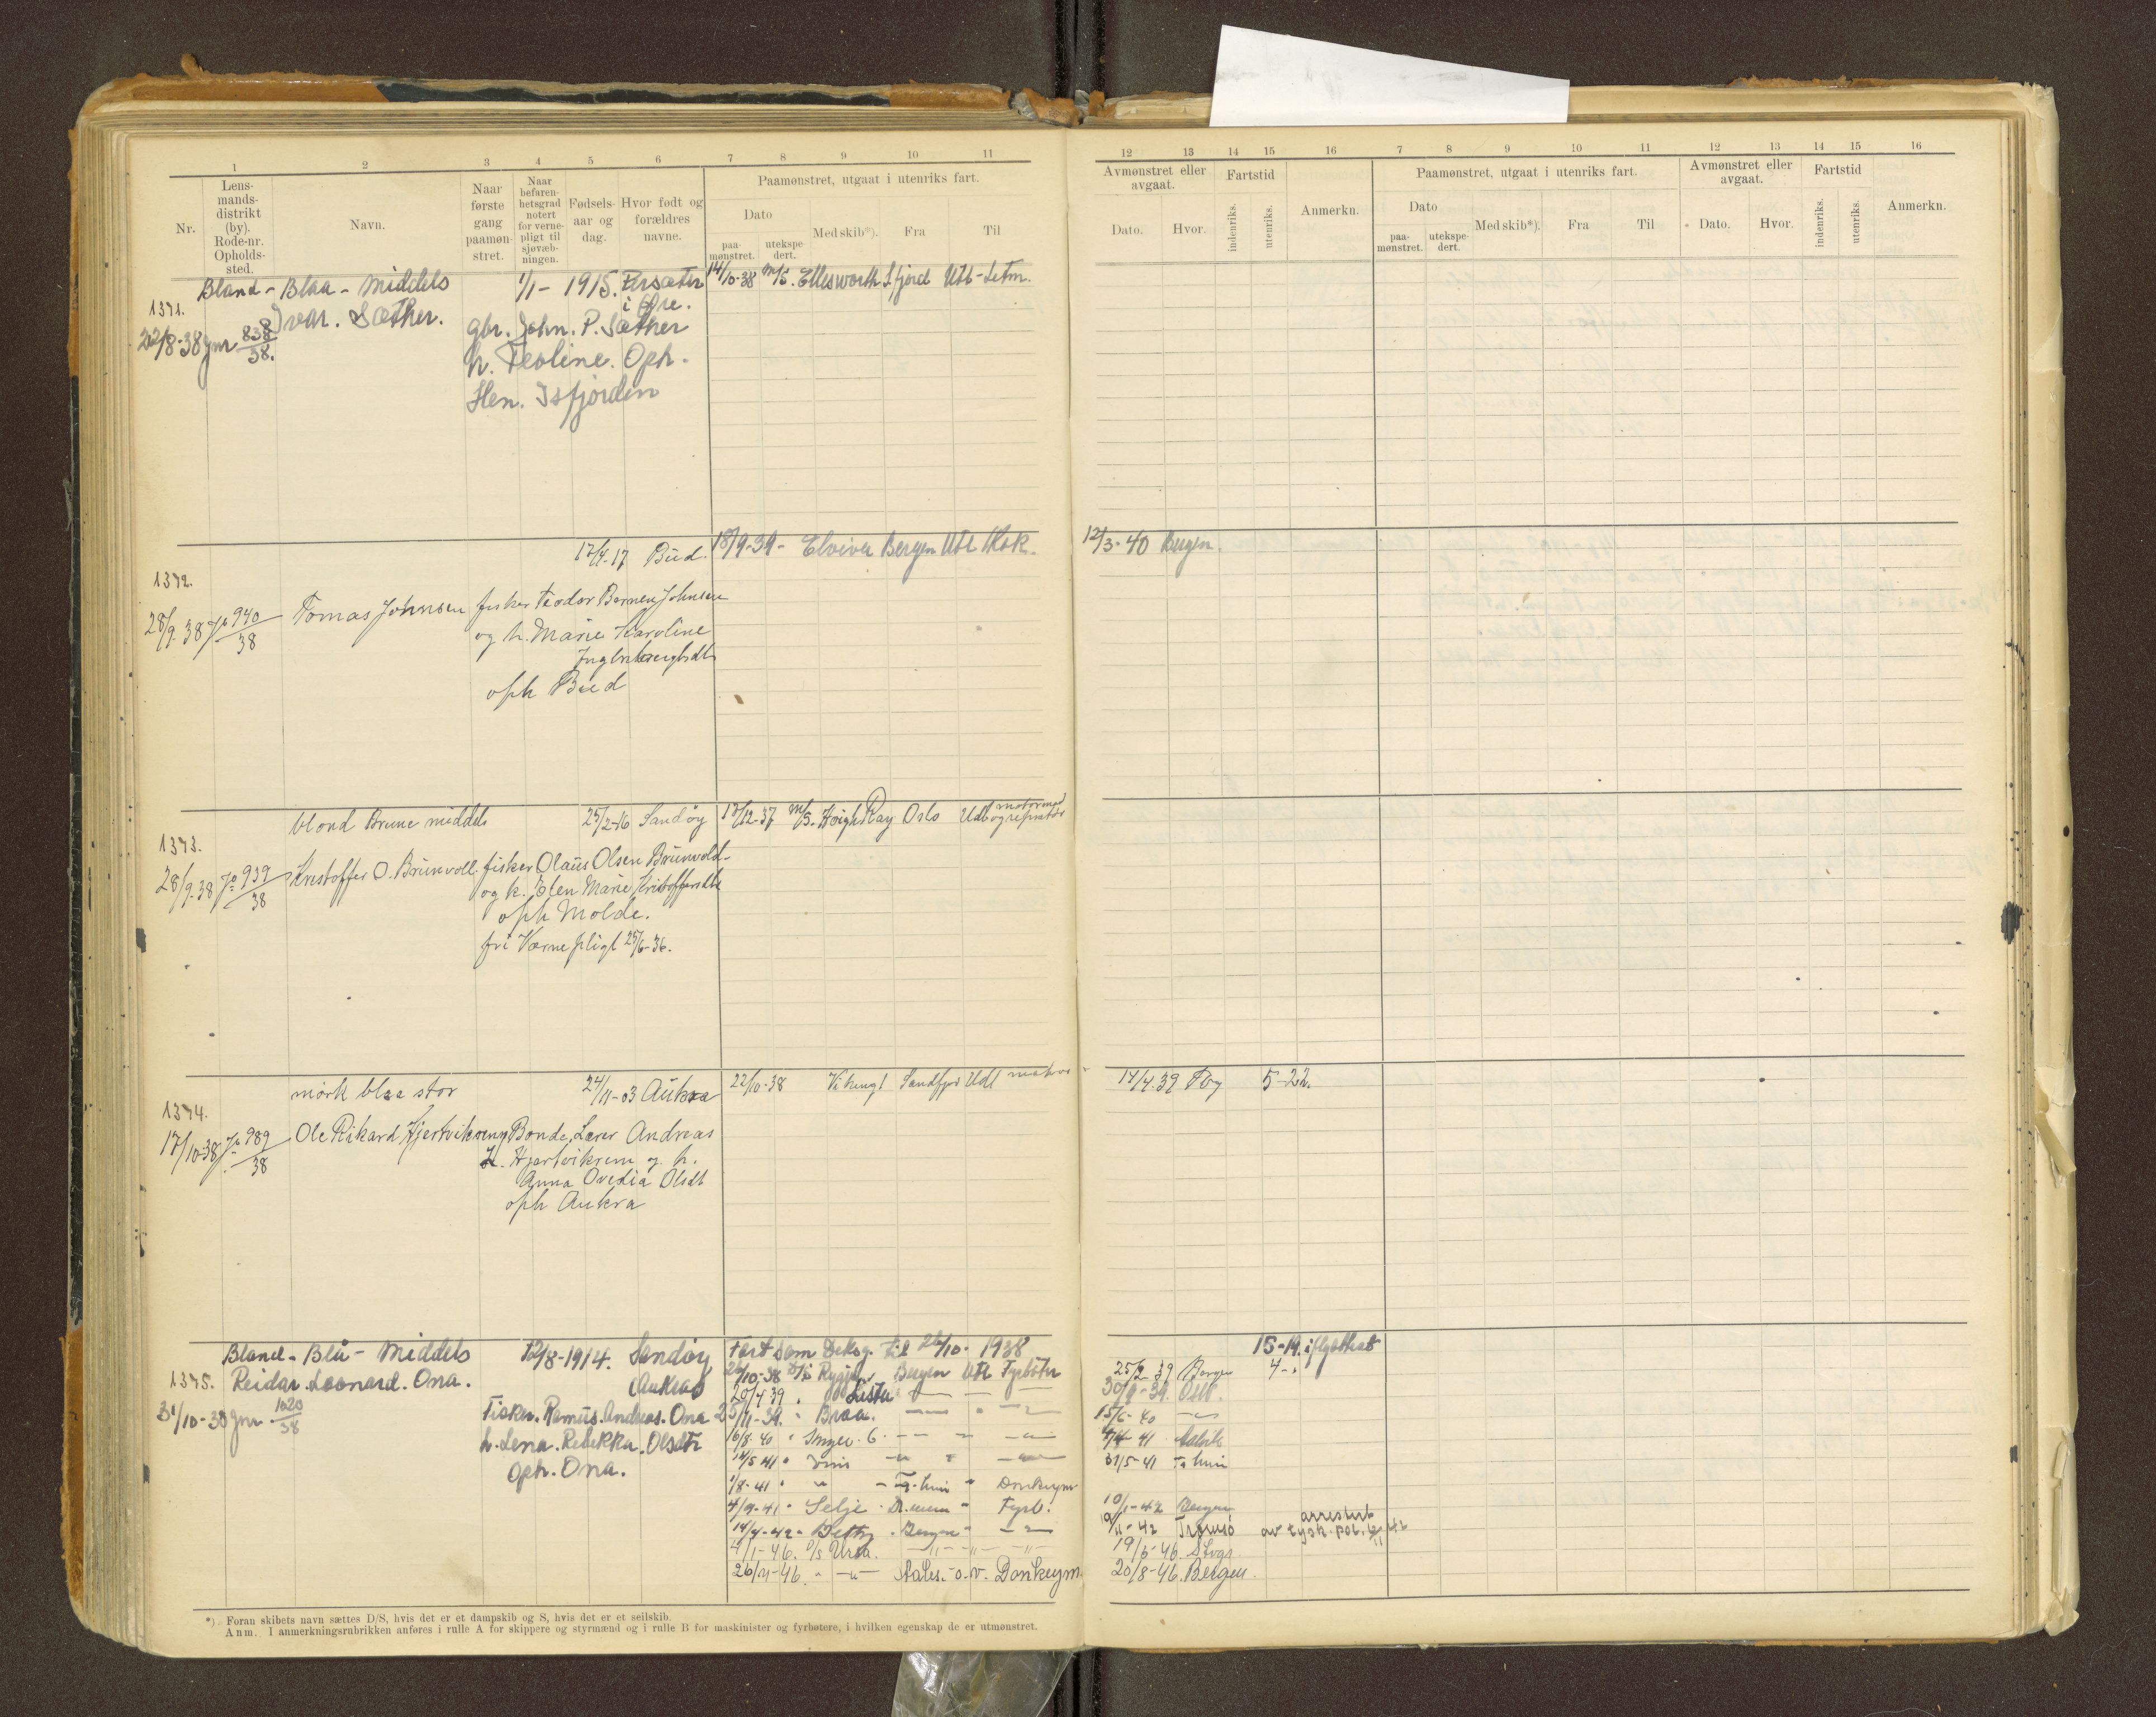 1 2 3 4 5 6 7 8 9 10 11
Nr.
Lens-
mands-
distrikt
(by).
Rode-nr.
Opholds-
sted.
Navn.
Naar
første
gang
paamøn-
stret.
Naar
befaren-
hetsgrad
notert
for verne-
pligt til
sjøvæb-
ningen.
Fødsels-
aar og
dag.
Hvor født og
forældres
navne.
Paamønstret, utgaat i utenriks fart.
Dato
paa-
mønstret.
utekspe-
dert.
Med skib*).
Fra
Til
12 13 14 15 16 7 8 9 10 11 12 13 14 15 16
Avmønstret eller
avgaat.
Dato.
Hvor.
Fartstid
indenriks.
utenriks.
Anmerkn.
Paamønstret, utgaat i utenriks fart.
Dato
paa-
mønstret.
utekspe-
dert.
Med skib*).
Fra
Til
Avmønstret eller
avgaat.
Dato.
Hvor.
Fartstid
indenriks.
utenriks.
Anmerkn.
Bland - Blaa - Middels 1/1 - 1915. 14/10-38 M/S. Ellesworth S.fjord Utl - Letm.
1371. Ivar. Sæther. i Øre.
22/8-38 jnr 838/38. gbr. John. P. Sæther
h. Teoline. Oph.
Hen. Isfjorden
17/4-17 Bud. 18/9-39 - Bergen Utl Kok. 12/3-40 Bergen.
1372.
28/9-38 940/38 Tomas Johnsen fisker Teodor Johnsen
og h. Marie Karoline
oph Bud
blond Brune middels 25/2-16 Sandøy 17/12-37 M/S. Høigh Ray Oslo Utl motormed
og reparatør
1373.
28/9-38 939/38 Krestoffer O. Brunvoll. fisker Olaus Olsen Brunvold
og h. Elen Marie Kristoffersdtr
oph Molde.
fri Værnepligt 25/6-36.
mørk blaa stor 24/11-03 Aukra 22/10-38 Sandfjord Utl 14/4.39 5-22.
1374.
17/10-38 989/38 Ole Rikard Hjertvikrem Bonde, Lærer Andreas
Hjertvikrem og h.
Anna Ovedia Olsdt
oph Aukra
Bland - Blå - Middels 12/8-1914. Sandøy Fart som Deksg. til 26/10. 1938 15-19.
1375. Reidar. Leonard. Ona. (Aukra) 26/10-38 Bergen Utl Fyrbøter 25/2-39 Bergen 4-.
31/10-38 jnr 1020/38 20/4 39 Lista 30/9-39. Oslo.
Fisker. Rasmus. Andreas. Ona 25/11-39. " Braa. 15/6-40
h. Lena. Rebekka. Olsdtr 16/8-40 " Inger. 6. 4/4-41
Oph. Ona. 14/5 41 " 31/5-41
1/8-41 " Donkeym
4/9-41 " Selje Fyrb. 10/1-42 Bergen
14/4-42 " Betty Bergen " 9/11-42 Tromsø arrestert
av tysk. pol.
4/1-46. D/S Ursa. 19/5-46. Stvgr.
26/4-46. " -"- Aales. - o. v. Donkeym. 20/8-46. Bergen.
*) Foran skibets navn sættes D/S, hvis det er et dampskib og S, hvis det er et seilskib.
Anm. I anmerkningsrubrikken anføres i rulle A for skippere og styrmænd og i rulle B for maskinister og fyrbøtere, i hvilken egenskap de er utmønstret.